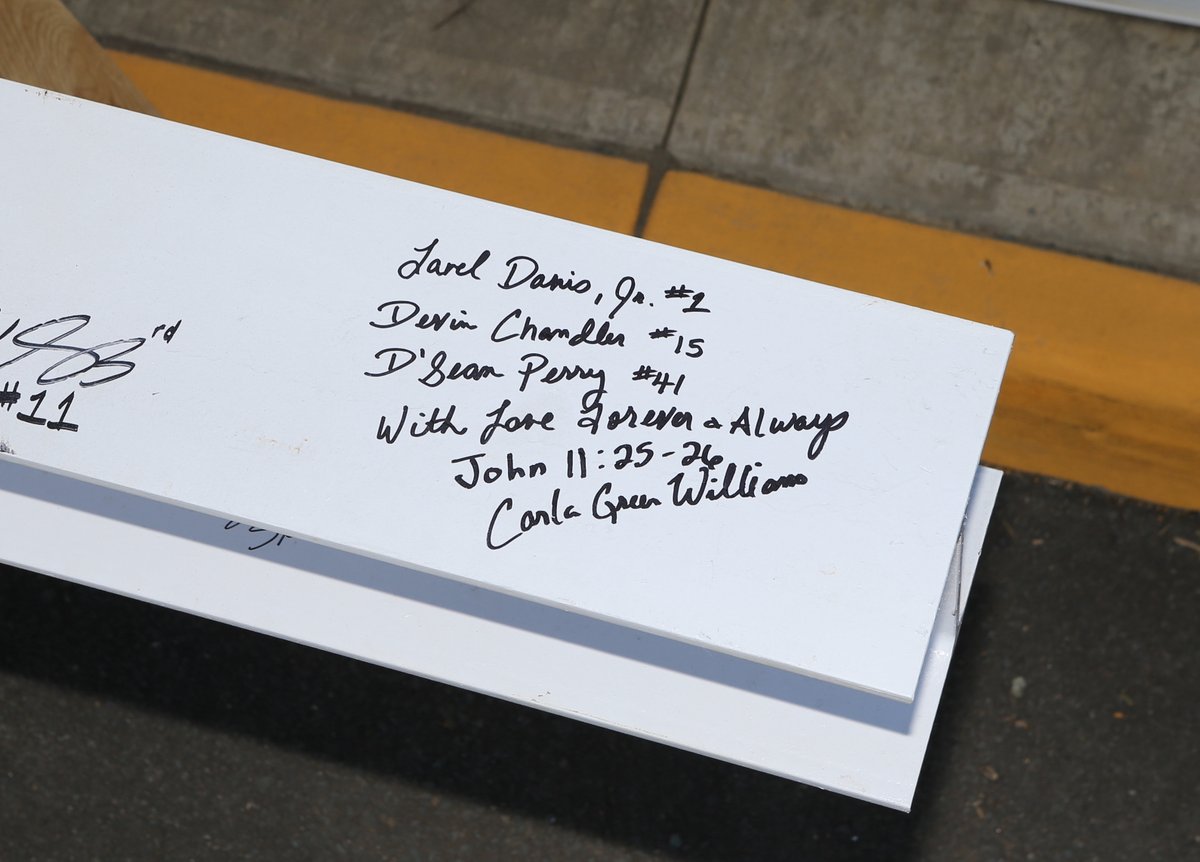 Lavel Davis, Jr. #1
Devin Chandler #15
D'Sean Perry #41
With Love Forever & Always
John 11:25-26
Carla Green Williams
rd
#11